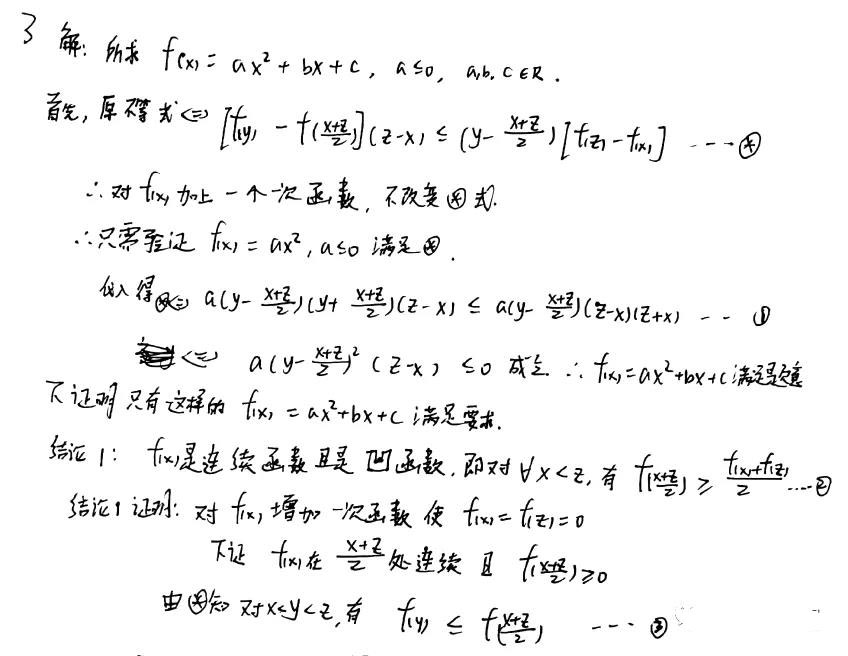 3 解: 所求 f(x) = ax² + bx + c, a≤0, a,b,c∈R.
首先, 原不等式 <=> [f(y) - f(\frac{x+z}{2})](z-x) ≤ (y - \frac{x+z}{2})[f(z) - f(x)] ---④
∴对 f(x) 加上一个一次函数, 不改变④式.
∴只需验证 f(x) = ax², a≤0 满足④.
代入得④<=> a(y - \frac{x+z}{2})(y + \frac{x+z}{2})(z-x) ≤ a(y - \frac{x+z}{2})(z-x)(z+x) -- ①
<=> a(y - \frac{x+z}{2})²(z-x) ≤0 成立 ∴ f(x)=ax²+bx+c满足题意
下证明只有这样的 f(x) = ax²+bx+c 满足要求.
结论1: f(x)是连续函数且是凹函数, 即对∀x<z, 有 f(\frac{x+z}{2}) ≥ \frac{f(x)+f(z)}{2} ---②
结论1证明: 对 f(x) 增加一次函数 使 f(x)=f(z)=0
下证 f(x)在 \frac{x+z}{2} 处连续 且 f(\frac{x+z}{2})≥0
由④知 对x<y<z, 有 f(y) ≤ f(\frac{x+z}{2}) ---③